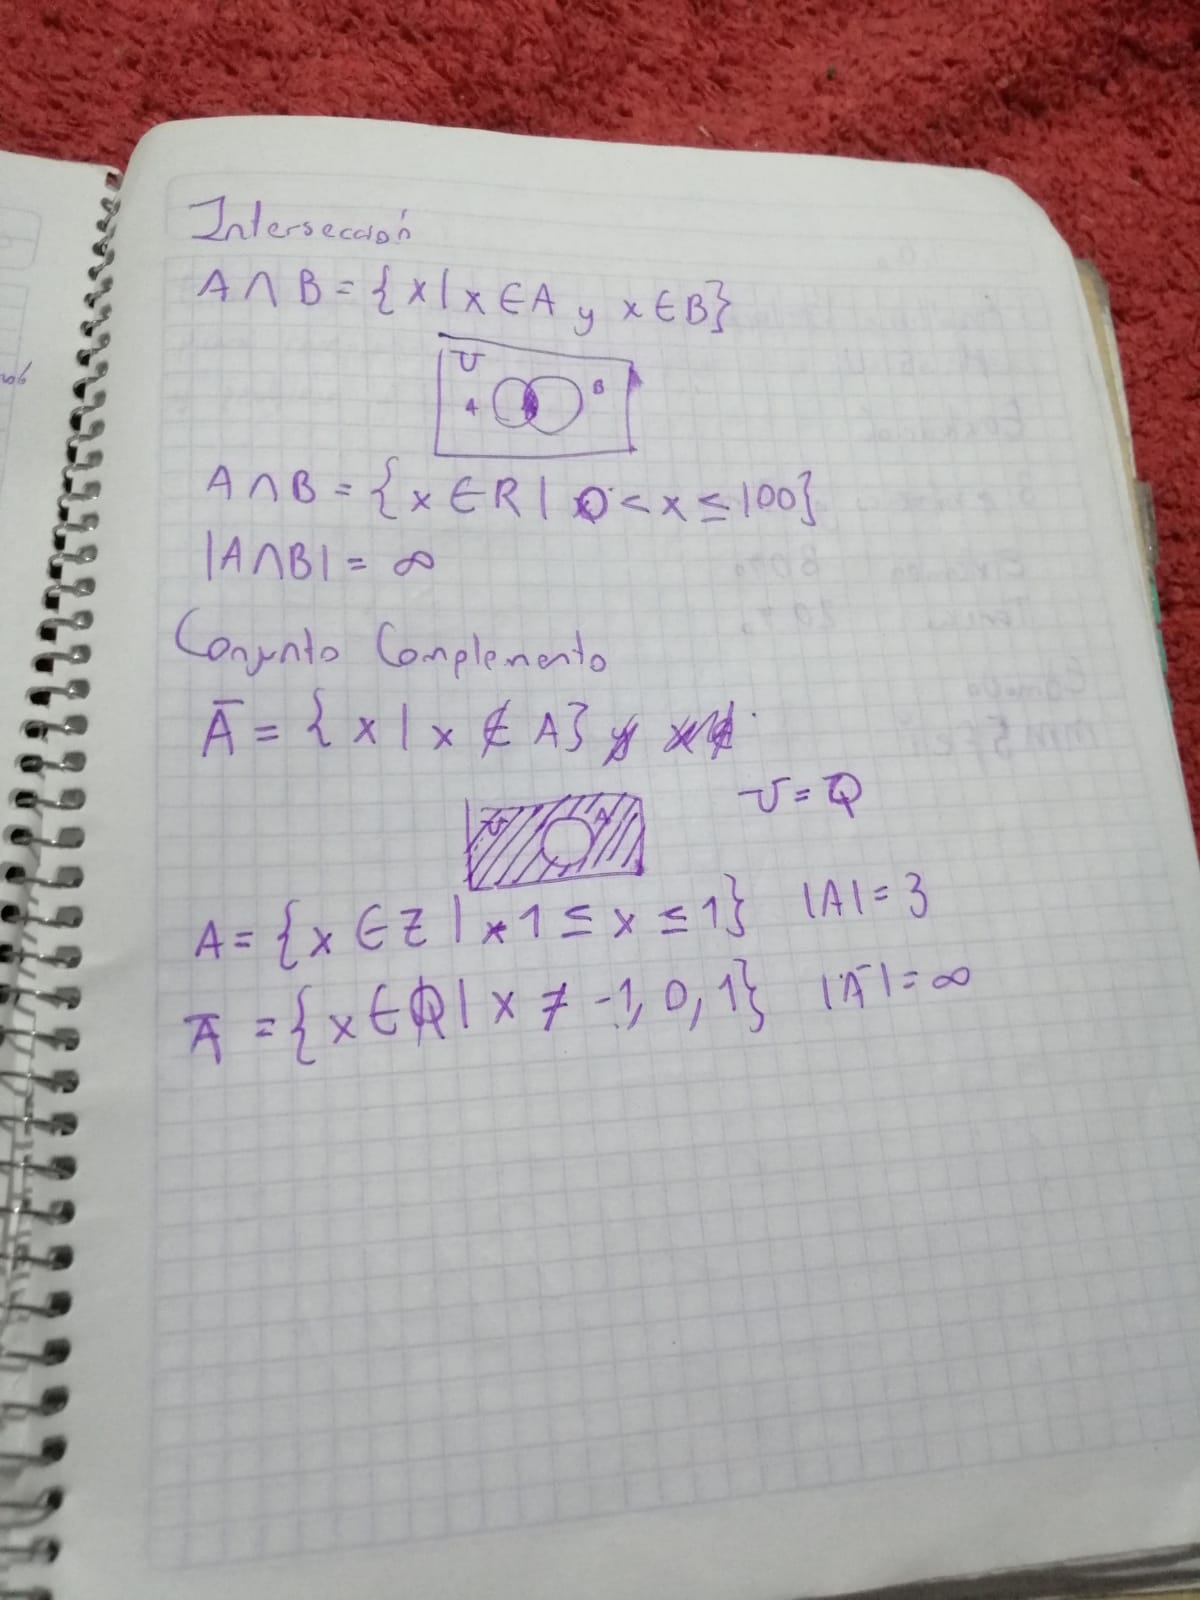 Intersección
A ∩ B = {x | x ∈ A y x ∈ B}
U
A B
A ∩ B = {x ∈ R | 0 < x ≤ 100}
|A ∩ B| = ∞
Conjunto Complemento
Ā = {x | x ∉ A}
U = Q
U A
A = {x ∈ Z | -1 ≤ x ≤ 1} |A| = 3
Ā = {x ∈ Q | x ≠ -1, 0, 1} |Ā| = ∞